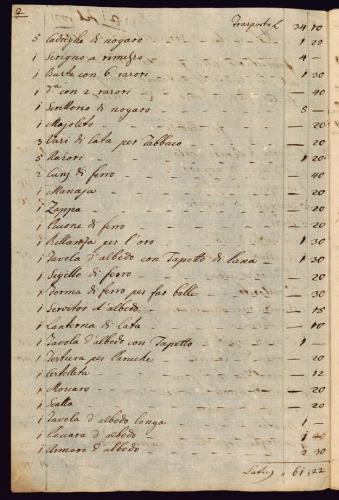 2
Trasporto L 34 10
5 Cadreghe di nogaro - - - 1 20
1 Scrigno a rimesso - - - 4 -
1 Busta con 6 rasori - - - 1 30
1 d.a con 2 rasori - - - - 40
1 Scrittorio di nogaro - - - 5 -
1 Majoleto - - - - 20
3 Vasi di lata per Tabbaco - - - 20
5 Rasori - - - 1 20
2 di ferro - - - - 40
1 Manaja - - - - 20
1 Zappa - - - - 20
1 di ferro - - - - 20
1 Bellanza per l'oro - - - 1 30
1 Tavola d'albedo con Tapetto di lana - 1 30
1 Sigello di ferro - - - 20
1 Forma di ferro per far balle - - 30
1 Servitor d'albedo - - - 15
1 Lanterna di lata - - - 10
1 Tavola d'albedo con Tapetto - - 1 -
1 per Peruche - - - 20
1 - - - 12
1 - - - 20
1 Scalla - - - 20
1 Tavola d'albedo longa - - 1 -
1 d'albedo - - - 1
1 Armaro d'albedo - - - 2 30
Latus 61 22